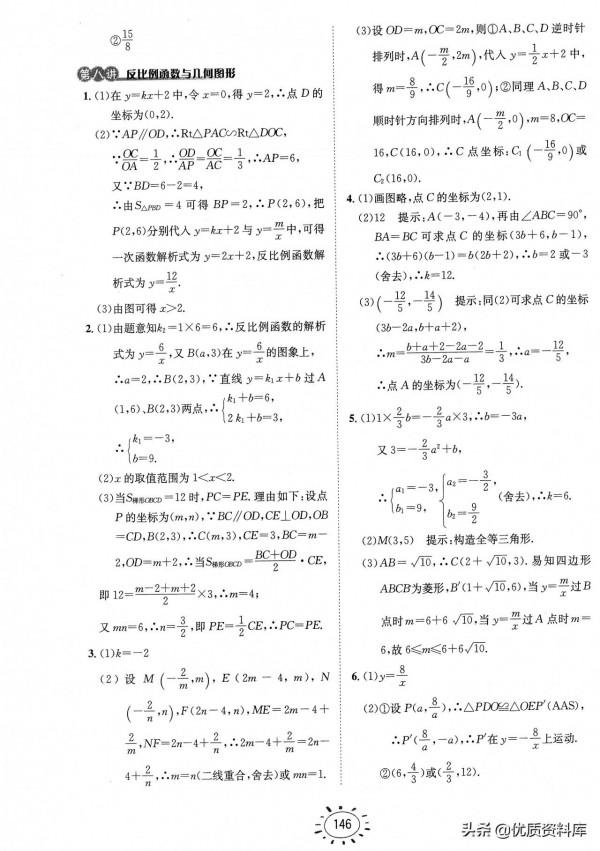 ②15/8
第八讲 反比例函数与几何图形
1. (1)在 y=kx+2 中,令 x=0,得 y=2,∴点 D 的
坐标为(0,2).
(2)∵AP∥OD,∴Rt△PAC∽Rt△DOC,
∵OC/OA=1/2,∴OD/AP=OC/AC=1/3,∴AP=6,
又∵BD=6-2=4,
∴由 S△PBD=4 可得 BP=2,∴P(2,6),把
P(2,6)分别代入 y=kx+2 与 y=m/x 中,可得
一次函数解析式为 y=2x+2,反比例函数解
析式为 y=12/x.
(3)由图可得 x>2.
2. (1)由题意知k₂=1×6=6,∴反比例函数的解析
式为 y=6/x,又 B(a,3)在 y=6/x 的图象上,
∴a=2,∴B(2,3),∵直线 y=k₁x+b 过 A
(1,6)、B(2,3)两点,∴{k₁+b=6, 2k₁+b=3,
∴{k₁=-3, b=9.
(2)x 的取值范围为 1<x<2.
(3)当S梯形OBCD=12 时,PC=PE. 理由如下:设点
P 的坐标为(m,n),∵BC∥OD,CE⊥OD,OB
=CD,B(2,3),∴C(m,3),CE=3,BC=m-
2,OD=m+2,∴当S梯形OBCD=(BC+OD)/2·CE,
即 12=(m-2+m+2)/2×3,∴m=4;
又 mn=6,∴n=3/2,即 PE=1/2CE,∴PC=PE.
3. (1)k=-2
(2) 设 M(-2/m,m), E(2m-4,m), N
(-2/n,n),F(2n-4,n),ME=2m-4+
2/m,NF=2n-4+2/n,∴2m-4+2/m=2n-
4+2/n,∴m=n(二线重合,舍去)或 mn=1.
(3)设 OD=m,OC=2m,则①A、B、C、D 逆时针
排列时,A(-m/2,2m),代入 y=1/2x+2 中,
得 m=8/9,∴C(-16/9,0);②同理 A、B、C、D
顺时针方向排列时,A(-m/2,0),m=8,OC=
16,C(16,0),∴C 点坐标:C₁(-16/9,0)或
C₂(16,0).
4. (1)画图略,点 C 的坐标为(2,1).
(2)12 提示:A(-3,-4),再由∠ABC=90°,
BA=BC 可求点 C 的坐标(3b+6,b-1),
∴(3b+6)(b-1)=b(2b+2),∴b=2 或-3
(舍去),∴k=12.
(3)(-12/5,-14/5) 提示:同(2)可求点 C 的坐标
(3b-2a,b+a+2),
∴m=(b+a+2-2a-2)/(3b-2a-a)=1/3,∴a=-12/5,
∴点 A 的坐标为(-12/5,-14/5).
5. (1)1×2/3b=-2/3a×3,∴b=-3a,
又 3=-2/3a²+b,
∴{a₁=-3, b₁=9, {a₂=-3/2, b₂=9/2 (舍去),∴k=6.
(2)M(3,5) 提示:构造全等三角形.
(3)AB=√10,∴C(2+√10,3). 易知四边形
ABCB′为菱形,B′(1+√10,6),当 y=m/x过 B
点时 m=6+6√10,当 y=m/x过 A 点时 m=
6,故 6≤m≤6+6√10.
6. (1)y=8/x
(2)①设 P(a,8/a),∴△PDO≌△OEP′(AAS),
∴P′(8/a,-a),∴P′在 y=-8/x上运动.
②(6,4/3)或(2/3,12).
146
头条 @优质资料库